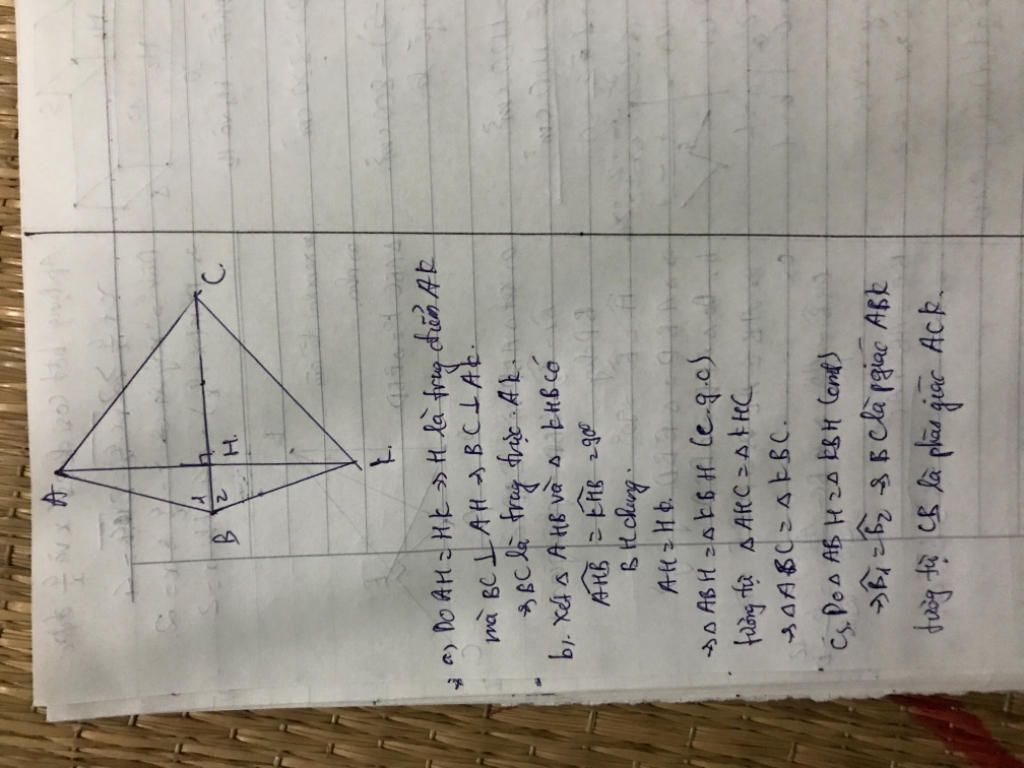 A
B
1
2
H.
C
K.
a, Do AH = HK → H là trung điểm AK
mà BC ⊥ AH → BC ⊥ AK.
→ BC là trung trực AK.
b, Xét △ AHB và △ KHB có
\widehat{AHB} = \widehat{KHB} = 90°
BH chung.
AH = HK.
→ △ ABH = △ KBH (c.g.c)
tương tự △ AHC = △ KHC
→ △ ABC = △ KBC.
c, Do △ ABH = △ KBH (cmt)
→ \widehat{B1} = \widehat{B2} → BC là pgiác ABK
tương tự CB là phân giác ACK.